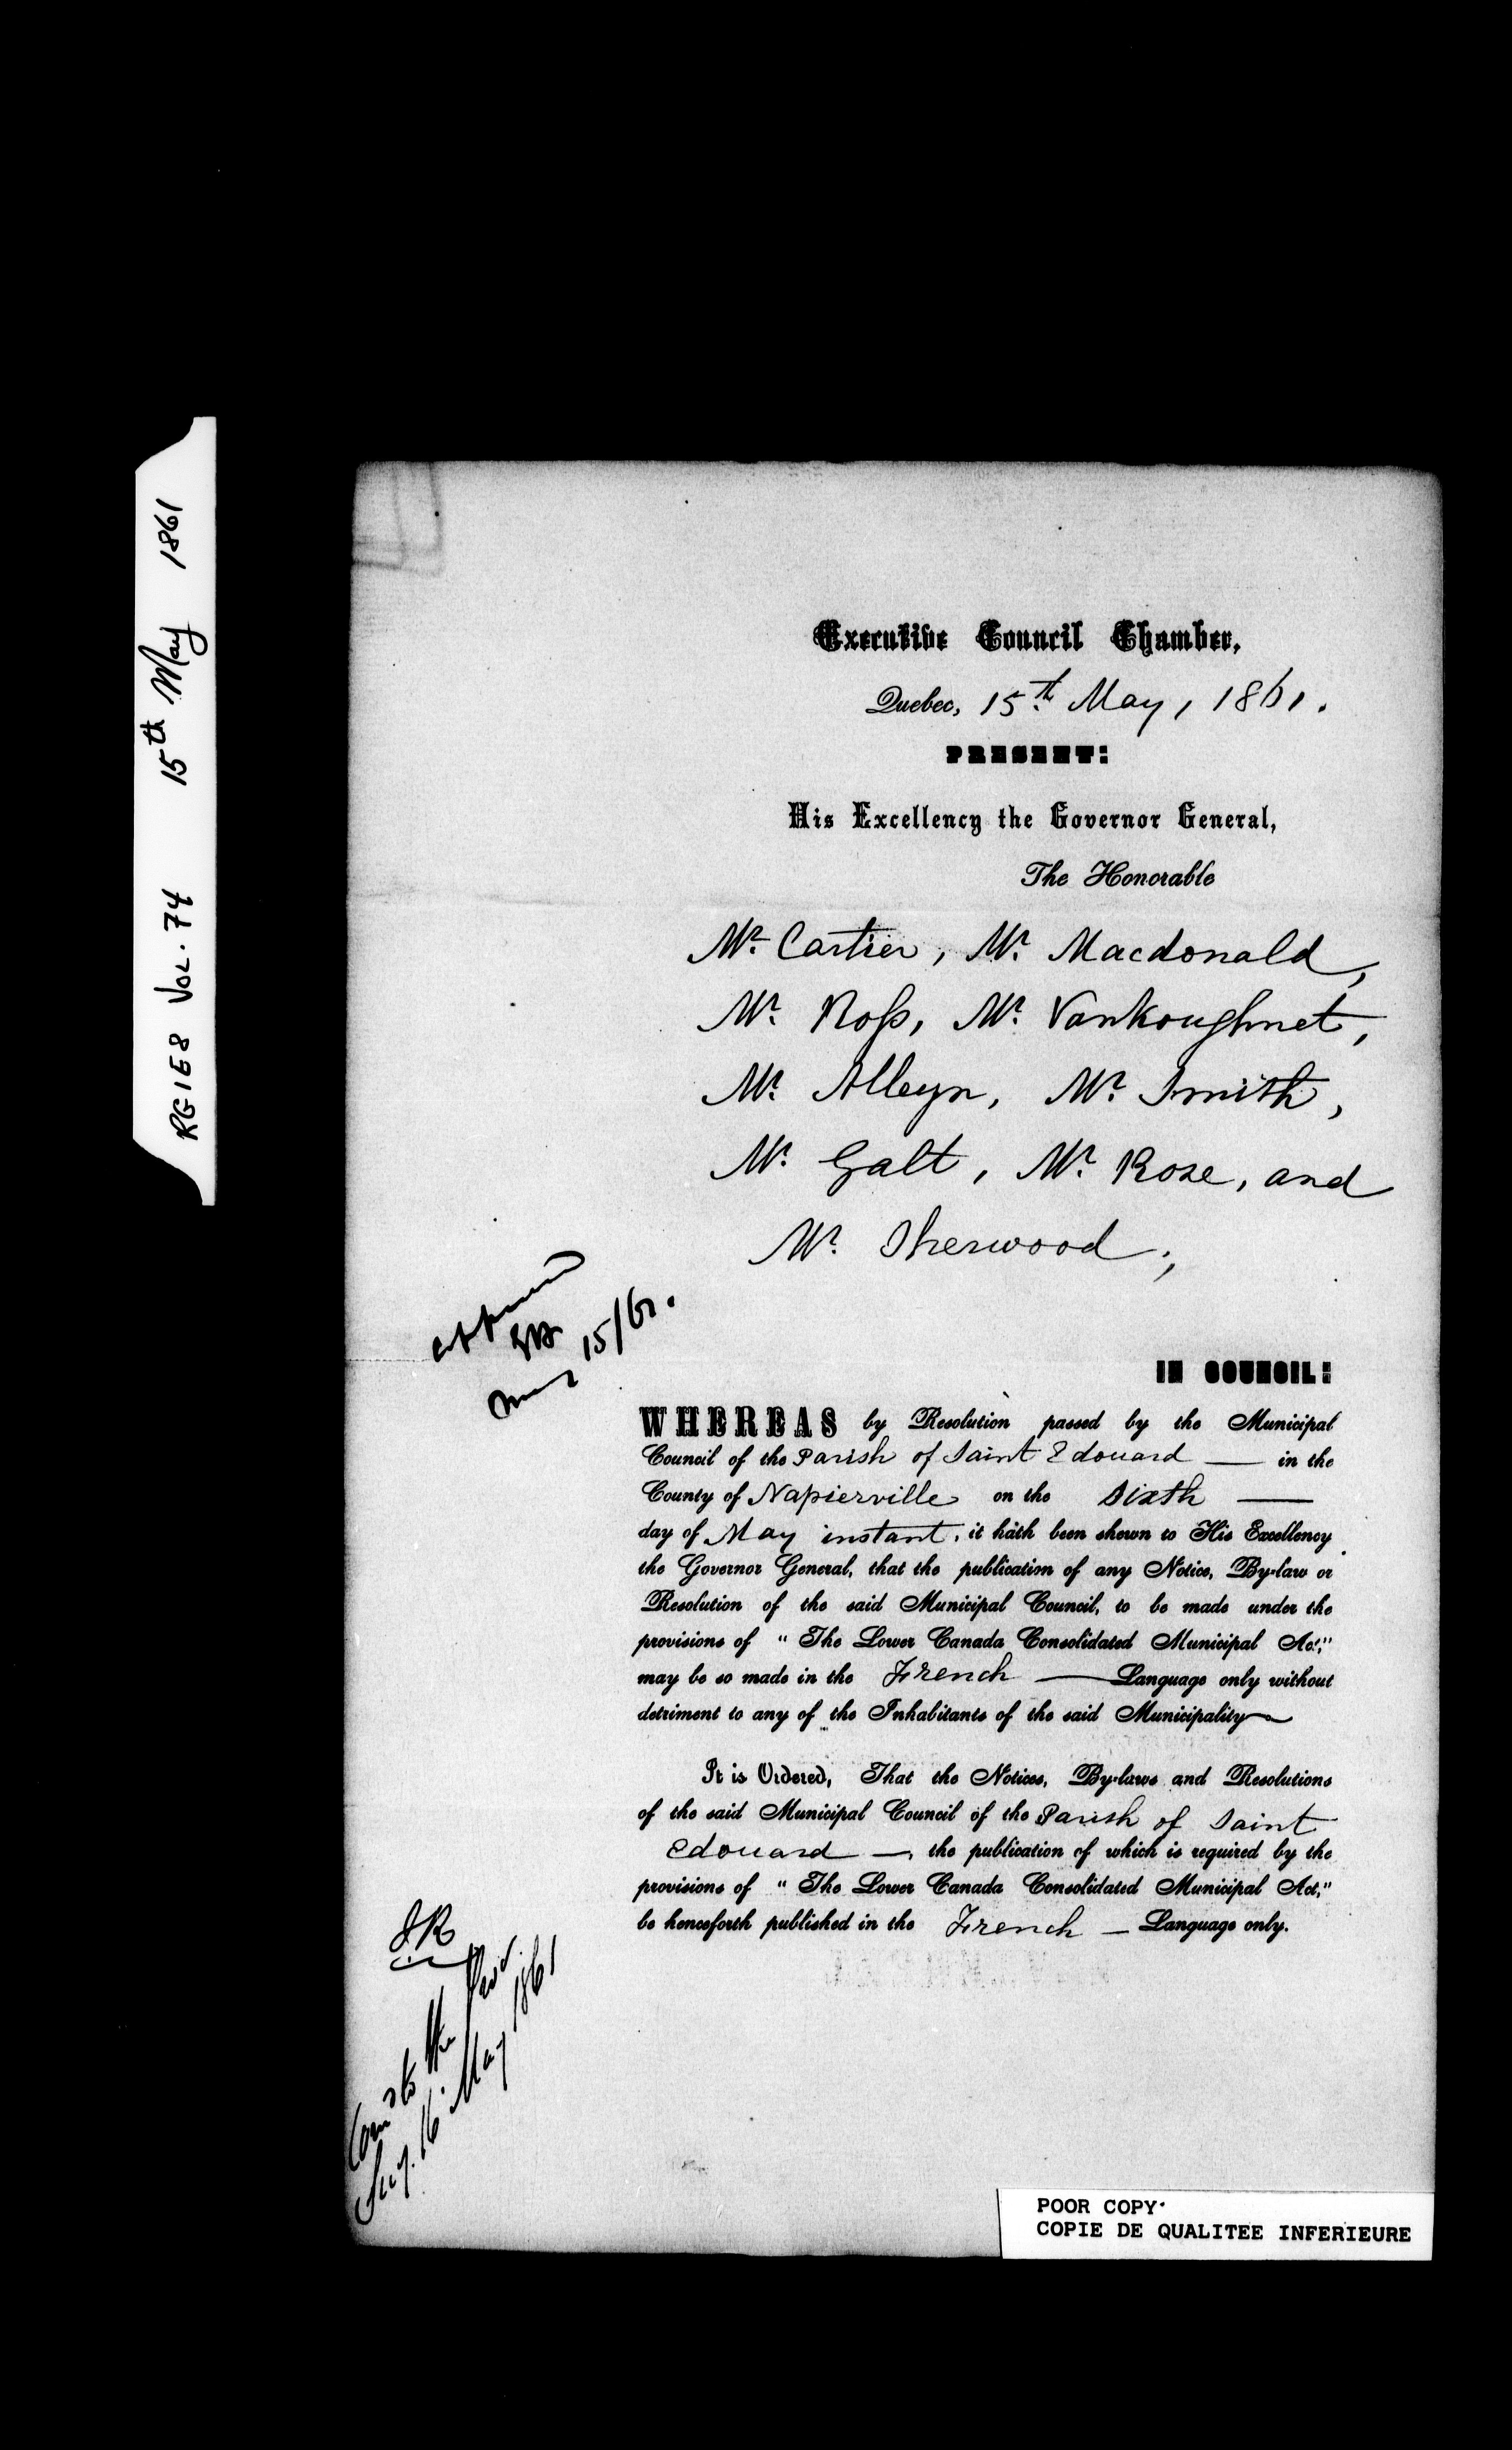 RG1E8 VOL. 74 15th May 1861
Executive Council Chamber,
Quebec, 15th May, 1861.
PRESENT:
His Excellency the Governor General,
The Honorable
Mr. Cartier, Mr. Macdonald,
Mr. Roſs, Mr. Vankoughnet,
Mr. Alleyn, Mr. Smith,
Mr. Galt, Mr. Rose, and
Mr. Sherwood;
15/61.
IN COUNCIL:
WHEREAS by Resolution passed by the Municipal
Council of the Parish of Saint Edouard — in the
County of Napierville on the Sixth —
day of May instant, it hath been shewn to His Excellency
the Governor General, that the publication of any Notice, By-law or
Resolution of the said Municipal Council, to be made under the
provisions of "The Lower Canada Consolidated Municipal Act,"
may be so made in the French — Language only without
detriment to any of the Inhabitants of the said Municipality
It is Ordered, That the Notices, By-laws and Resolutions
of the said Municipal Council of the Parish of Saint
Edouard —, the publication of which is required by the
provisions of "The Lower Canada Consolidated Municipal Act,"
be henceforth published in the French — Language only.
JR
to the
16. May 1861
POOR COPY.
COPIE DE QUALITEE INFERIEURE